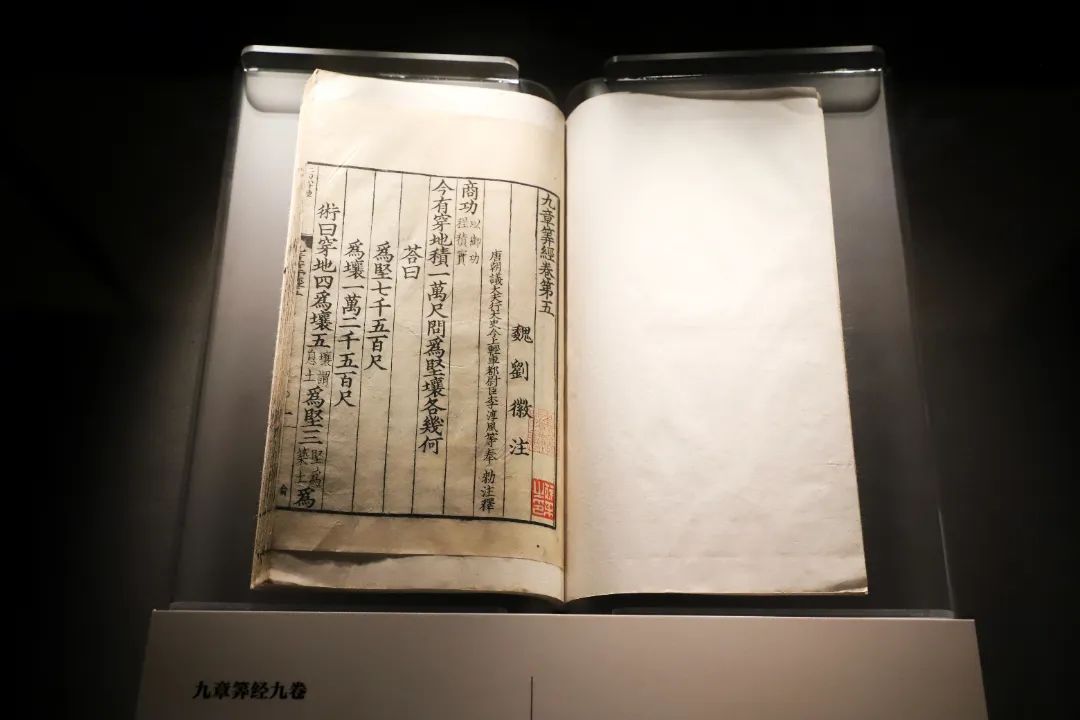 九章筭經卷第五
魏劉徽注
唐朝議大夫行太史令上輕車都尉臣李淳風等奉 勑注釋
商功以御功程積實
今有穿地積一萬尺問爲堅壤各幾何
荅曰
爲堅七千五百尺
爲壤一萬二千五百尺
術曰穿地四爲壤五壤謂息土爲堅三堅爲築土爲
九章筭经九卷